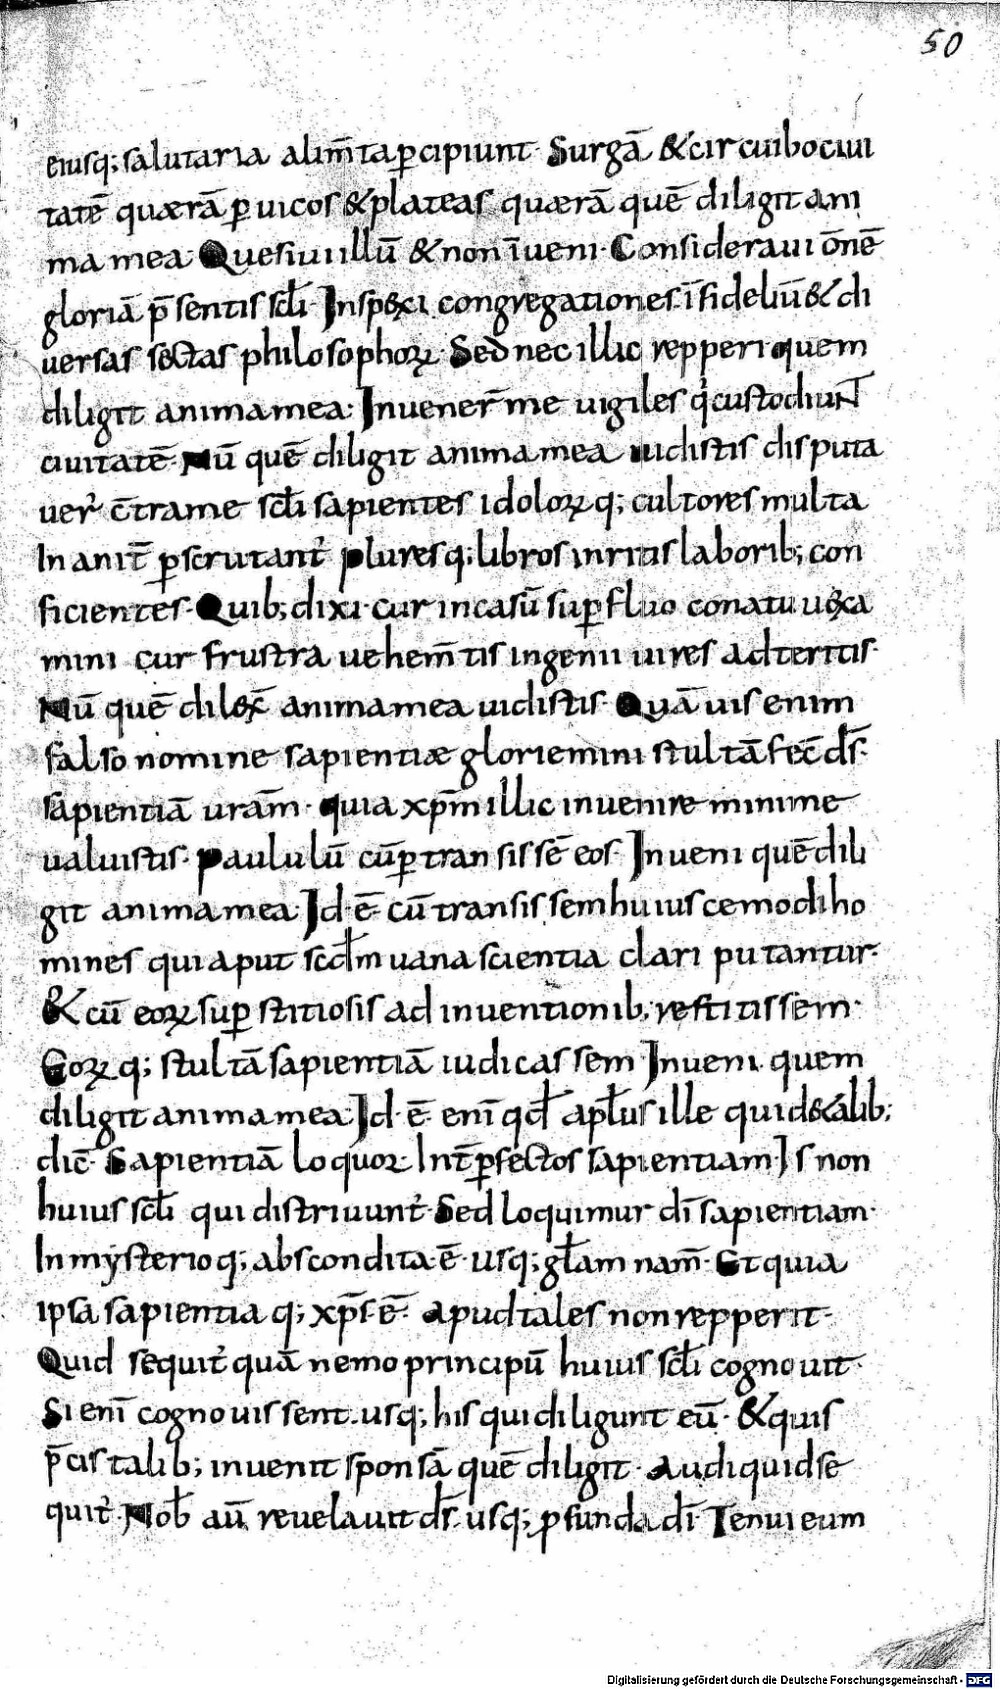 50
eiusq; salutaria alim̅ta p̲cipiunt· Surgā & circuibo ciui
tatē quærā p̲ uicos & plateas quærā quē diligit ani
ma mea· Quesiui illū & non īueni· Consideraui ōnē
gloriā p̄sentis scl̅i· Inspexi congregationes īfideliū & di
uersas sectas philosophoꝝ· Sed nec illic repperi quem
diligit anima mea· Inuener̄ me uigiles q' custodiunt
ciuitatē· Nū quē diligit anima mea uidistis disputa
uer' c̄tra me scl̅i sapientes idoloꝝ q; cultores multa
In anit̄ p̲scrutant' pluresq; libros inritis laborib; con
ficientes· Quib; dixi· cur incasū sup̲fluo conatu uexa
mini cur frustra uehem̄tis ingenii uires adteritis·
Nū quē dilex̄ anima mea uidistis· Quāuis enim
falso nomine sapientiæ gloriemini stultā fec̄ ds̅·
sapientiā ur̄am· quia xp̅m illic inuenire minime
ualuistis· Paululū cū p̲transissē eos· Inueni quē dili
git anima mea· Id· ē· cū transissem huiuscemodi ho
mines qui aput scd̅m uana scientia clari putantur·
& cū eoꝝ sup̲stitiosis adinuentionib; restitissem·
Eoꝝ q; stultā sapientiā iudicassem· Inueni quem
diligit anima mea· Id· ē· enī qd̅ apl̅us ille quid & alib;
dic̄· Sapientiā loquoꝝ Int̄ p̲fectos sapientiam· Is non
huius scl̅i qui distriuunt'· Sed loquimur dī sapientiam·
In mysterio q; abscondita· ē· usq; gl̅am nam̅· Et quia
ipsa sapientia q; xp̅s· ē· apud tales non repperit·
Quid sequit' quā nemo principū huius scl̅i cognouit·
Si enī cognouissent· usq; his qui diligunt eū· & quis
p̄cis talib; inuenit sponsā quē diligit· Audi quid se
quit'· Nob̅ aū reuelauit ds̅· usq; ꝓfunda dī· Tenui eum
Digitalisierung gefördert durch die Deutsche Forschungsgemeinschaft - DFG